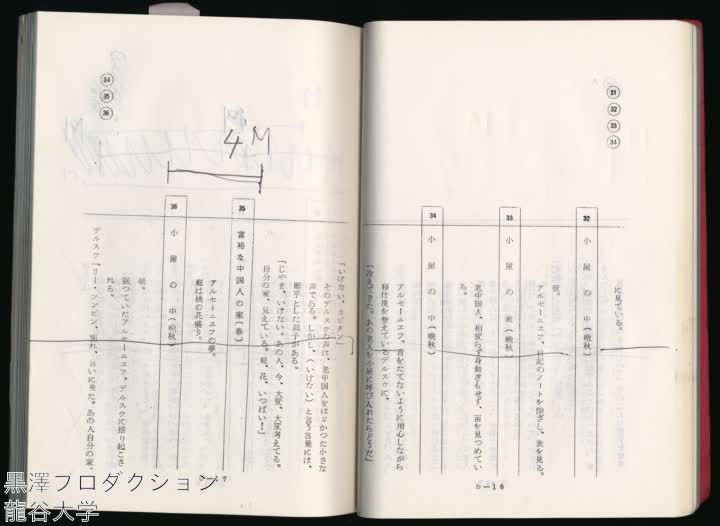 31
32
33
34
に見ている。
32 小屋の中(晩秋)
夜。
アルセーニエフ、日記のノートを閉ざし、表を見る。
33 小屋の表(晩秋)
老中国人、相変らず身動きもせず、宙を見つめてい
る。
34 小屋の中(晩秋)
アルセーニエフ、音をたてないように用心しながら
寝仕度を整えているデルスウに、
「冷えてきた。あの老人を小屋に呼び入れたらどうだ」
D—16
34
35
36
4M
「いけない、カピタン」
そのデルスウの声は、老中国人をはばかつた小さな
声である。しかし、(いけない)と言う言葉には、
断乎とした調子がある。
「じやま、いけない。あの人、今、大変、大変考えてる。
自分の家、見えている。庭、花、いつぱい!」
35 富裕な中国人の家(春)
アルセーニエフの夢。
庭は桃の花盛り。
36 小屋の中(晩秋)
朝。
眠つていたアルセーニエフ、デルスウに揺り起こさ
れる。
デルスウ「リー・ツンビン、別れ、言いに来た。あの人自分の家、
D—17
黒澤プロダクション
龍谷大学